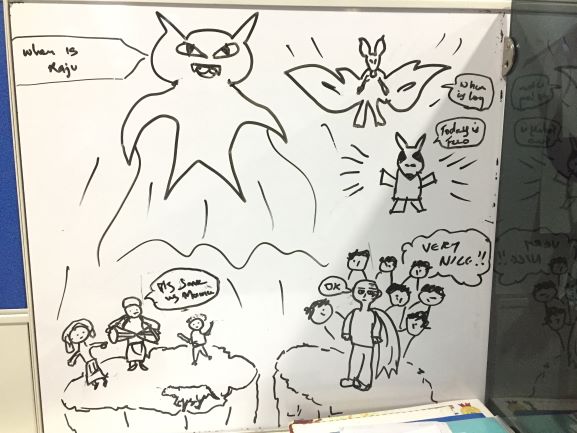 When is
Raju
When
is log
Today is
Pls Save
us Mommy
OK
VERY
NICE!!